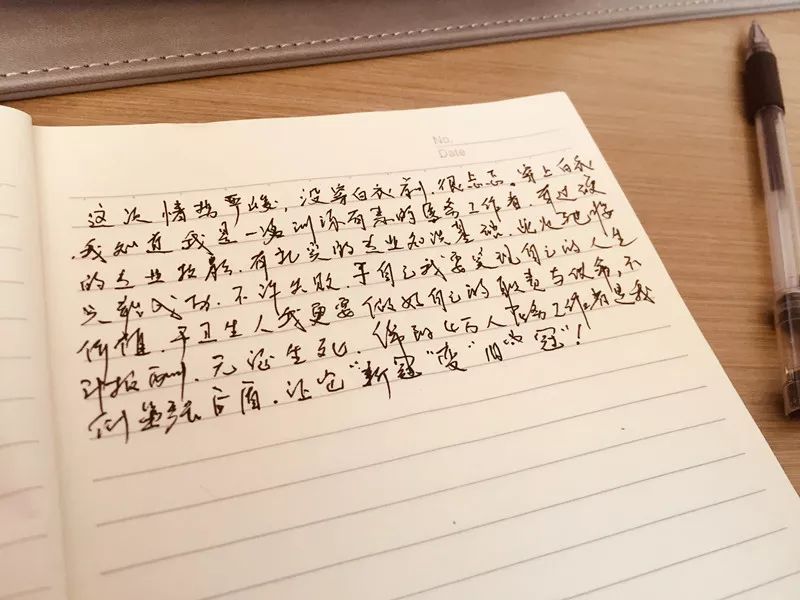 No.
Date
这次情势严峻，没穿白衣前，很忐忑。穿上白衣
我知道我是一名训练有素的医务工作者，有过硬
的专业技能，有扎实的专业知识基础，此次驰将
只能成功，不许失败，于自己我要实现自己的人生
价值，于卫生人我更要做好自己的职责与使命，不
计报酬，无论生死，万人医务工作者是我
们坚强后盾，让它“新冠”变“旧冠”！